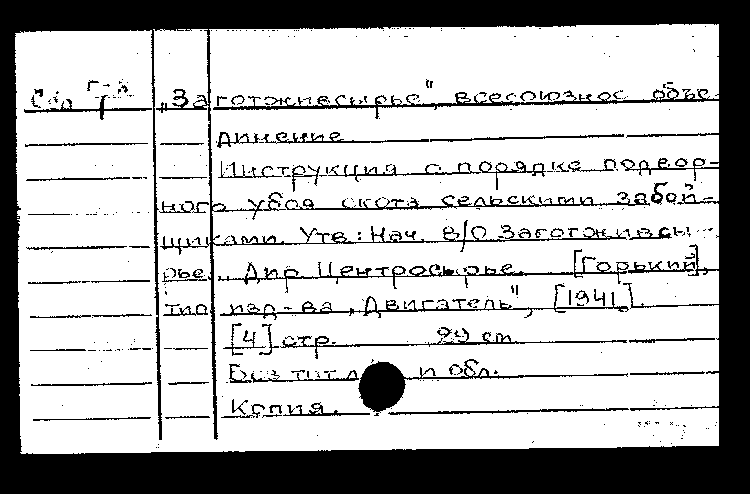 Сбо Г-Х „Заготживсырье", всесоюзное объе-
7
динение
Инструкция о порядке подвор-
ного убоя скота сельскими забой-
щиками. Утв: Нач. В/О Заготживсы-
рье.. Дир Центросырье. [Горький],
тип изд-ва „Двигатель", [1941].
[4] стр. 29 см
Без тит л и обл.
Копия.